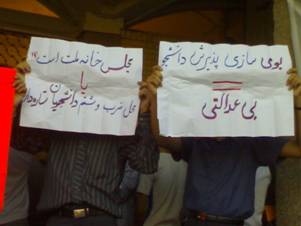 بومی سازی پذیرش دانشجو
=
بی عدالتی
مجلس خانه ملت است
یا
محل ضرب و شتم دانشجویان ستاره‌دار